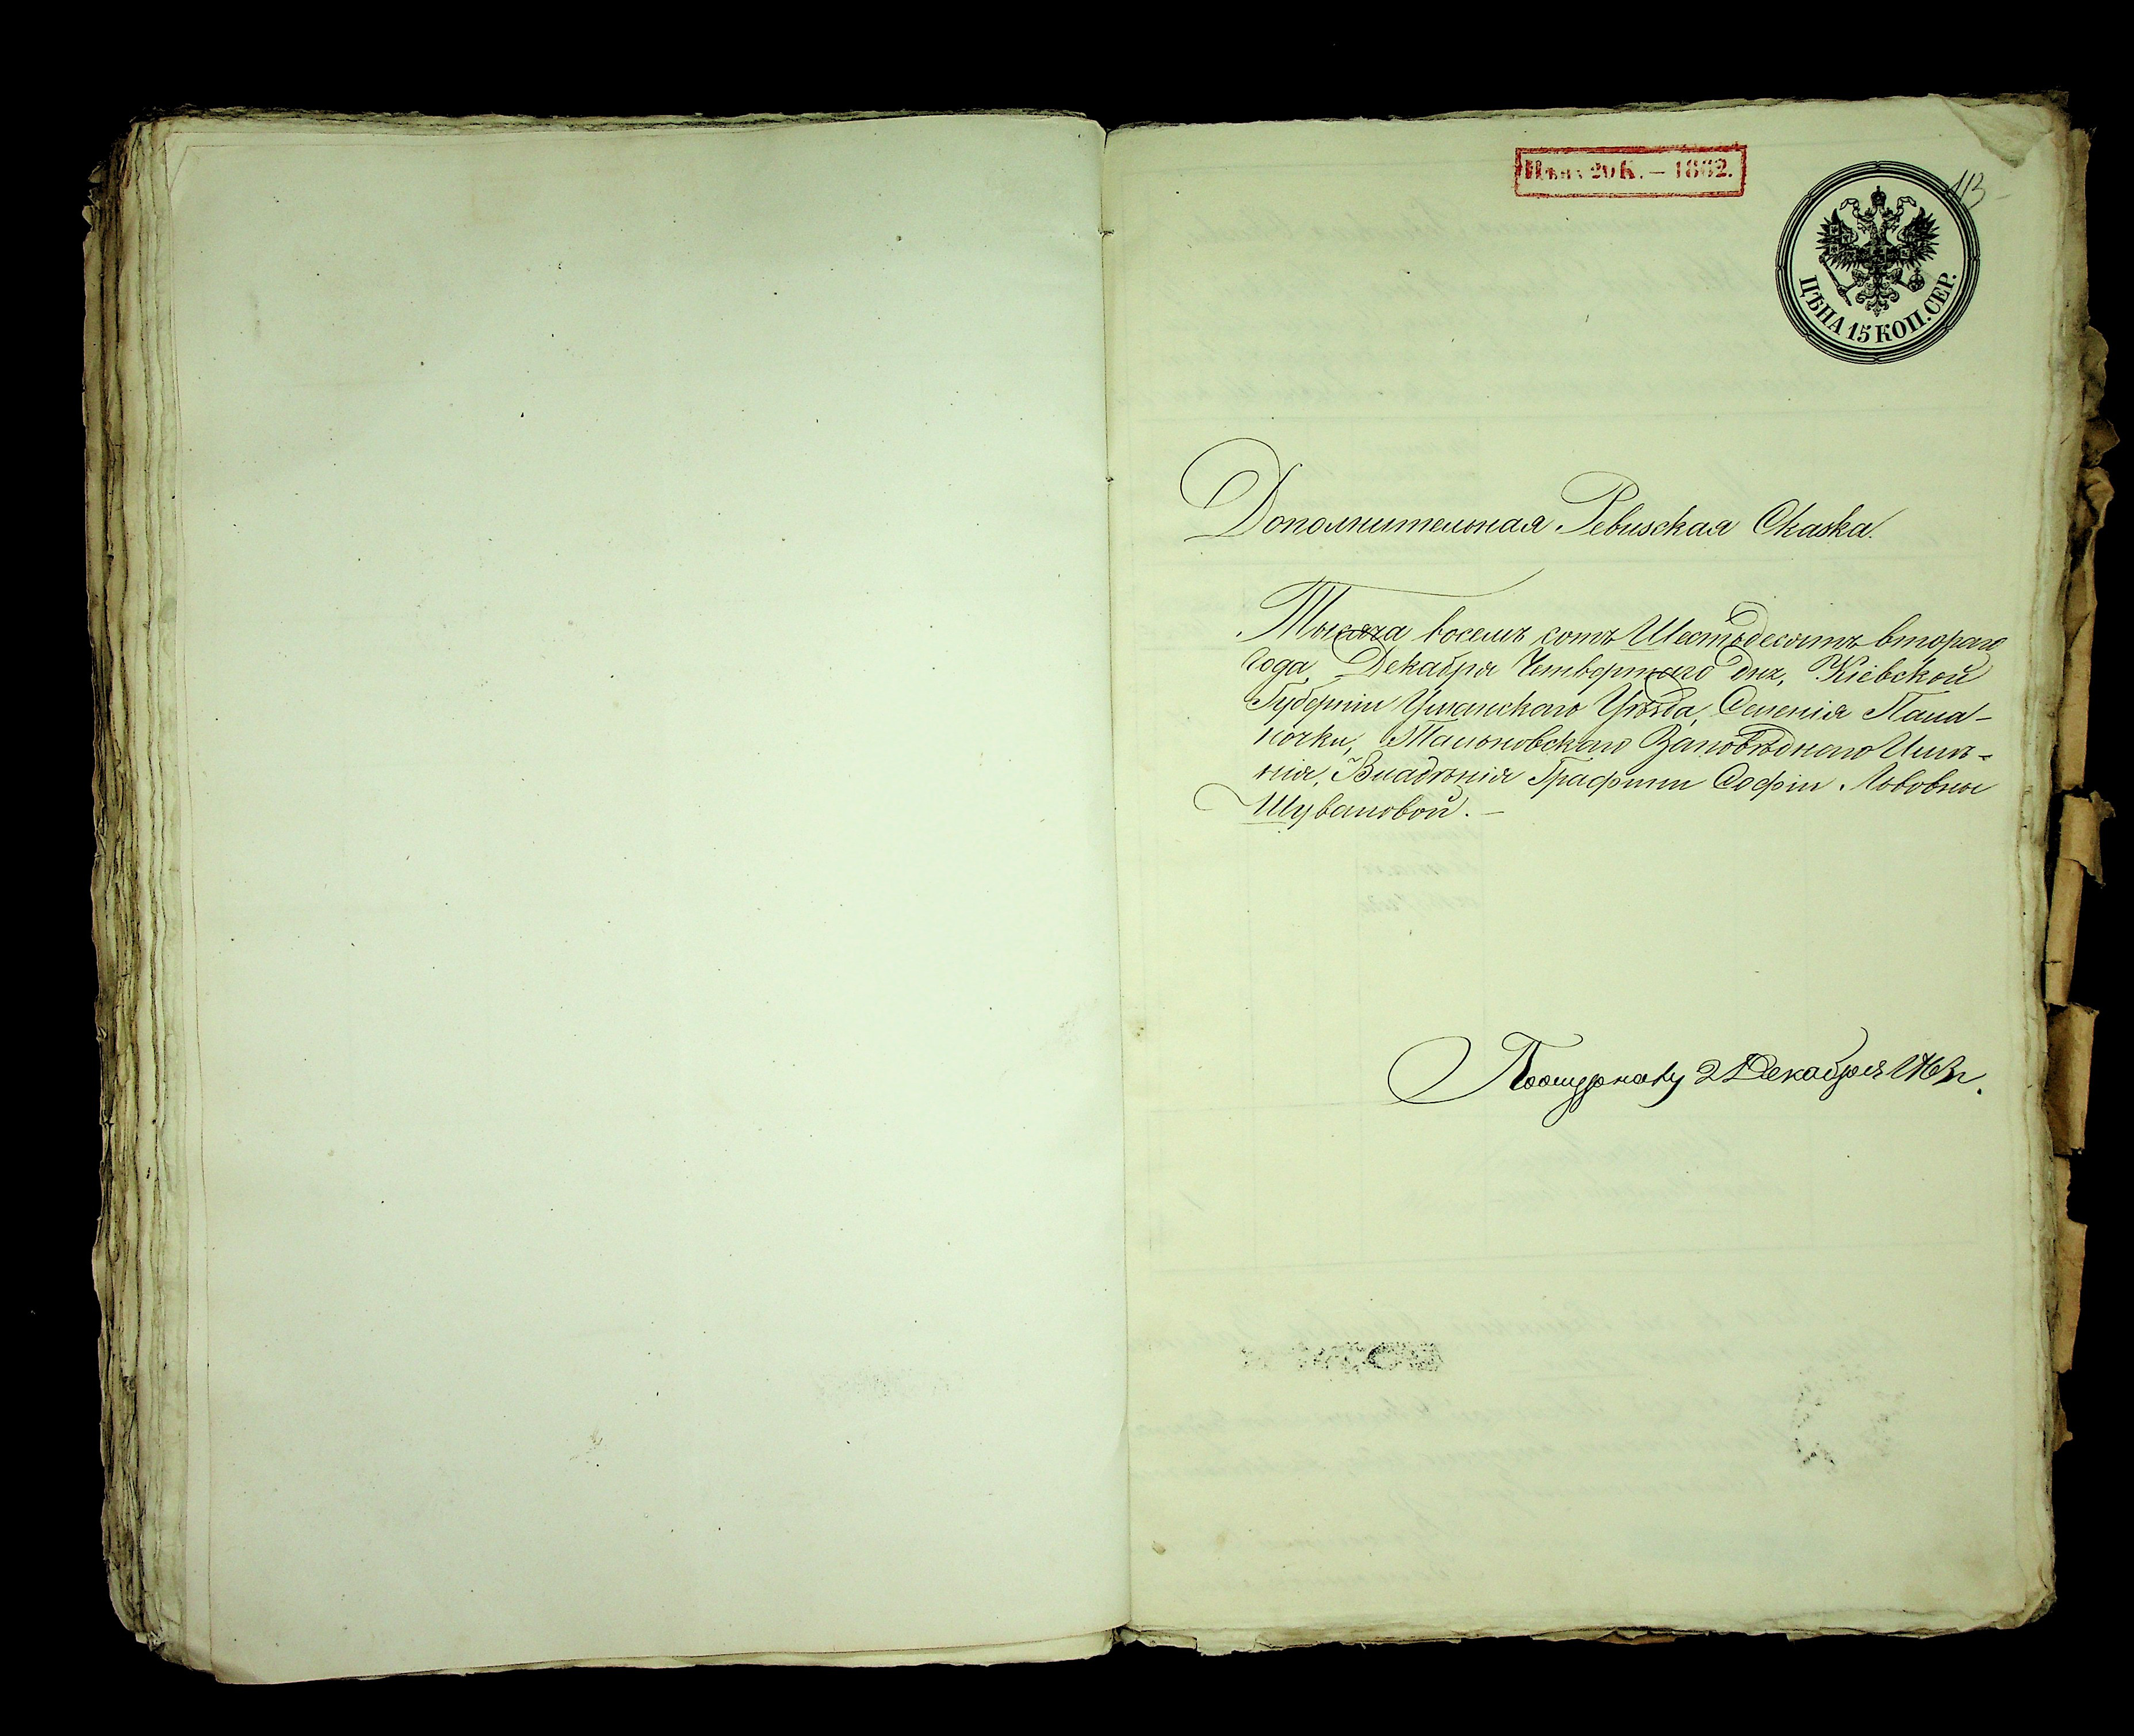 Цѣна 20 К. – 1862.
113
ЦѢНА 15 КОП. СЕР.
Дополнительная Ревизская Сказка.
Тысяча восемь сотъ Шестьдесятъ втораго
года, Декабря Четвертаго дня, Кіевской
Губерніи Уманскаго Уѣзда, Селенія Пала-
ночки, Тальновскаго Заповѣднаго Имѣ-
нія, Владѣнія Графини Софіи Львовны
Шуваловой. –
По журналу 2 Декабря